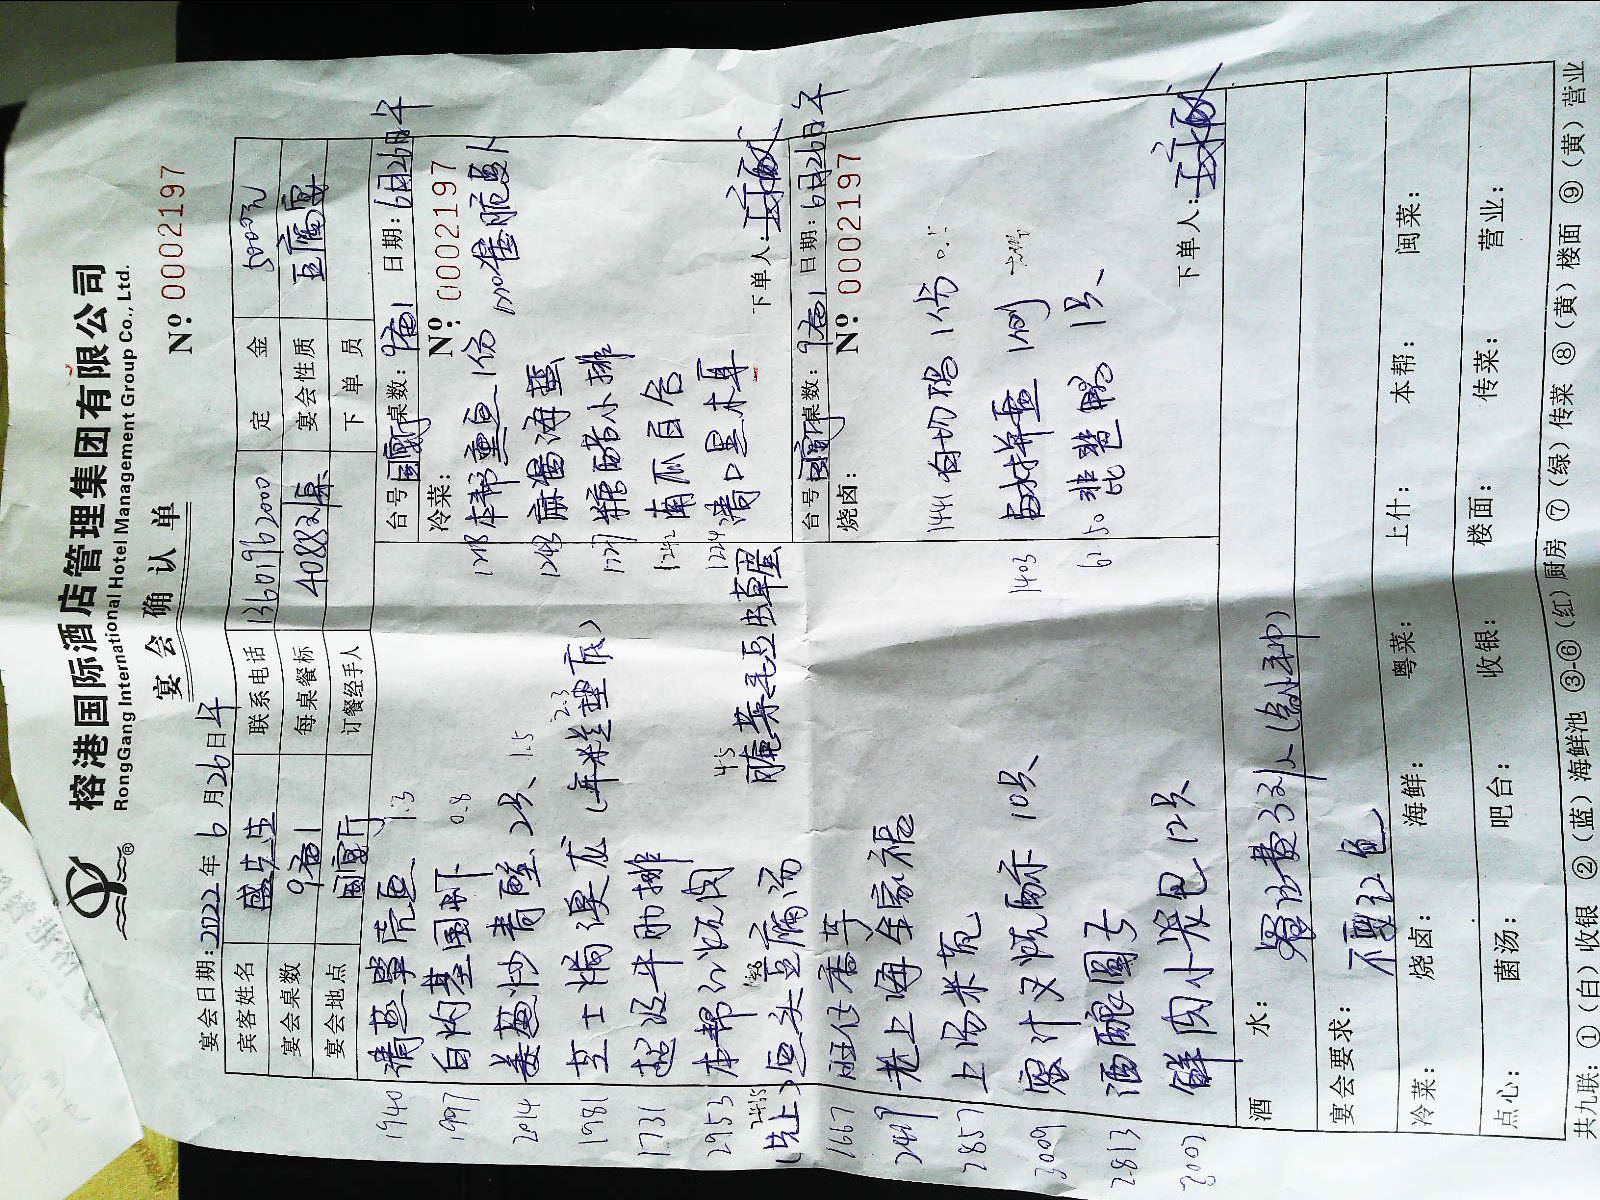 榕港国际酒店管理集团有限公司
RongGang International Hotel Management Group Co., Ltd.
宴会确认单
№ 0002197
宴会日期:2022年6月26日午
宾客姓名 联系电话 13601962000 定金 5000元
宴会桌数 9备1 每桌餐标 4088元/桌 宴会性质 豆腐宴
宴会地点 国宴厅 订餐经手人 下单员
1940 清蒸 1.3
1997 白灼基围虾 0.8
2014 姜葱炒青蟹 2只 1.5
1981 芝士焗澳龙(年糕垫底) 2.3
1731 超级牛肋排
2953 本帮红烧肉
(先上) 豆腐汤 4.5 腌菜毛豆虫草花
1667
2449 老上海全家福
2857 上汤米苋
3009 蜜汁叉烧酥 10只
2813 酒酿圆子
2007 鲜肉小笼包 12只
台号 国宴厅 桌数:9备1 日期:6月26日午
冷菜: № 0002197
1218 本帮熏鱼 1份
1243 麻酱海蜇
1227 糖醋小排
1242 南瓜百合
1224 清口黑木耳
下单人:
台号 国宴厅 桌数:9备1 日期:6月26日午
烧卤: № 0002197
1441 白切鸡 1份 0.5
1403 卤水拼盘 1例
1只
下单人:
酒水:
宴会要求: 不要红色
冷菜: 烧卤: 海鲜: 粤菜: 上什: 本帮: 闽菜:
点心: 菌汤: 吧台: 收银: 楼面: 传菜: 营业:
共九联:①(白)收银 ②(蓝)海鲜池 ③-⑥(红)厨房 ⑦(绿)传菜 ⑧(黄)楼面 ⑨(黄)营业